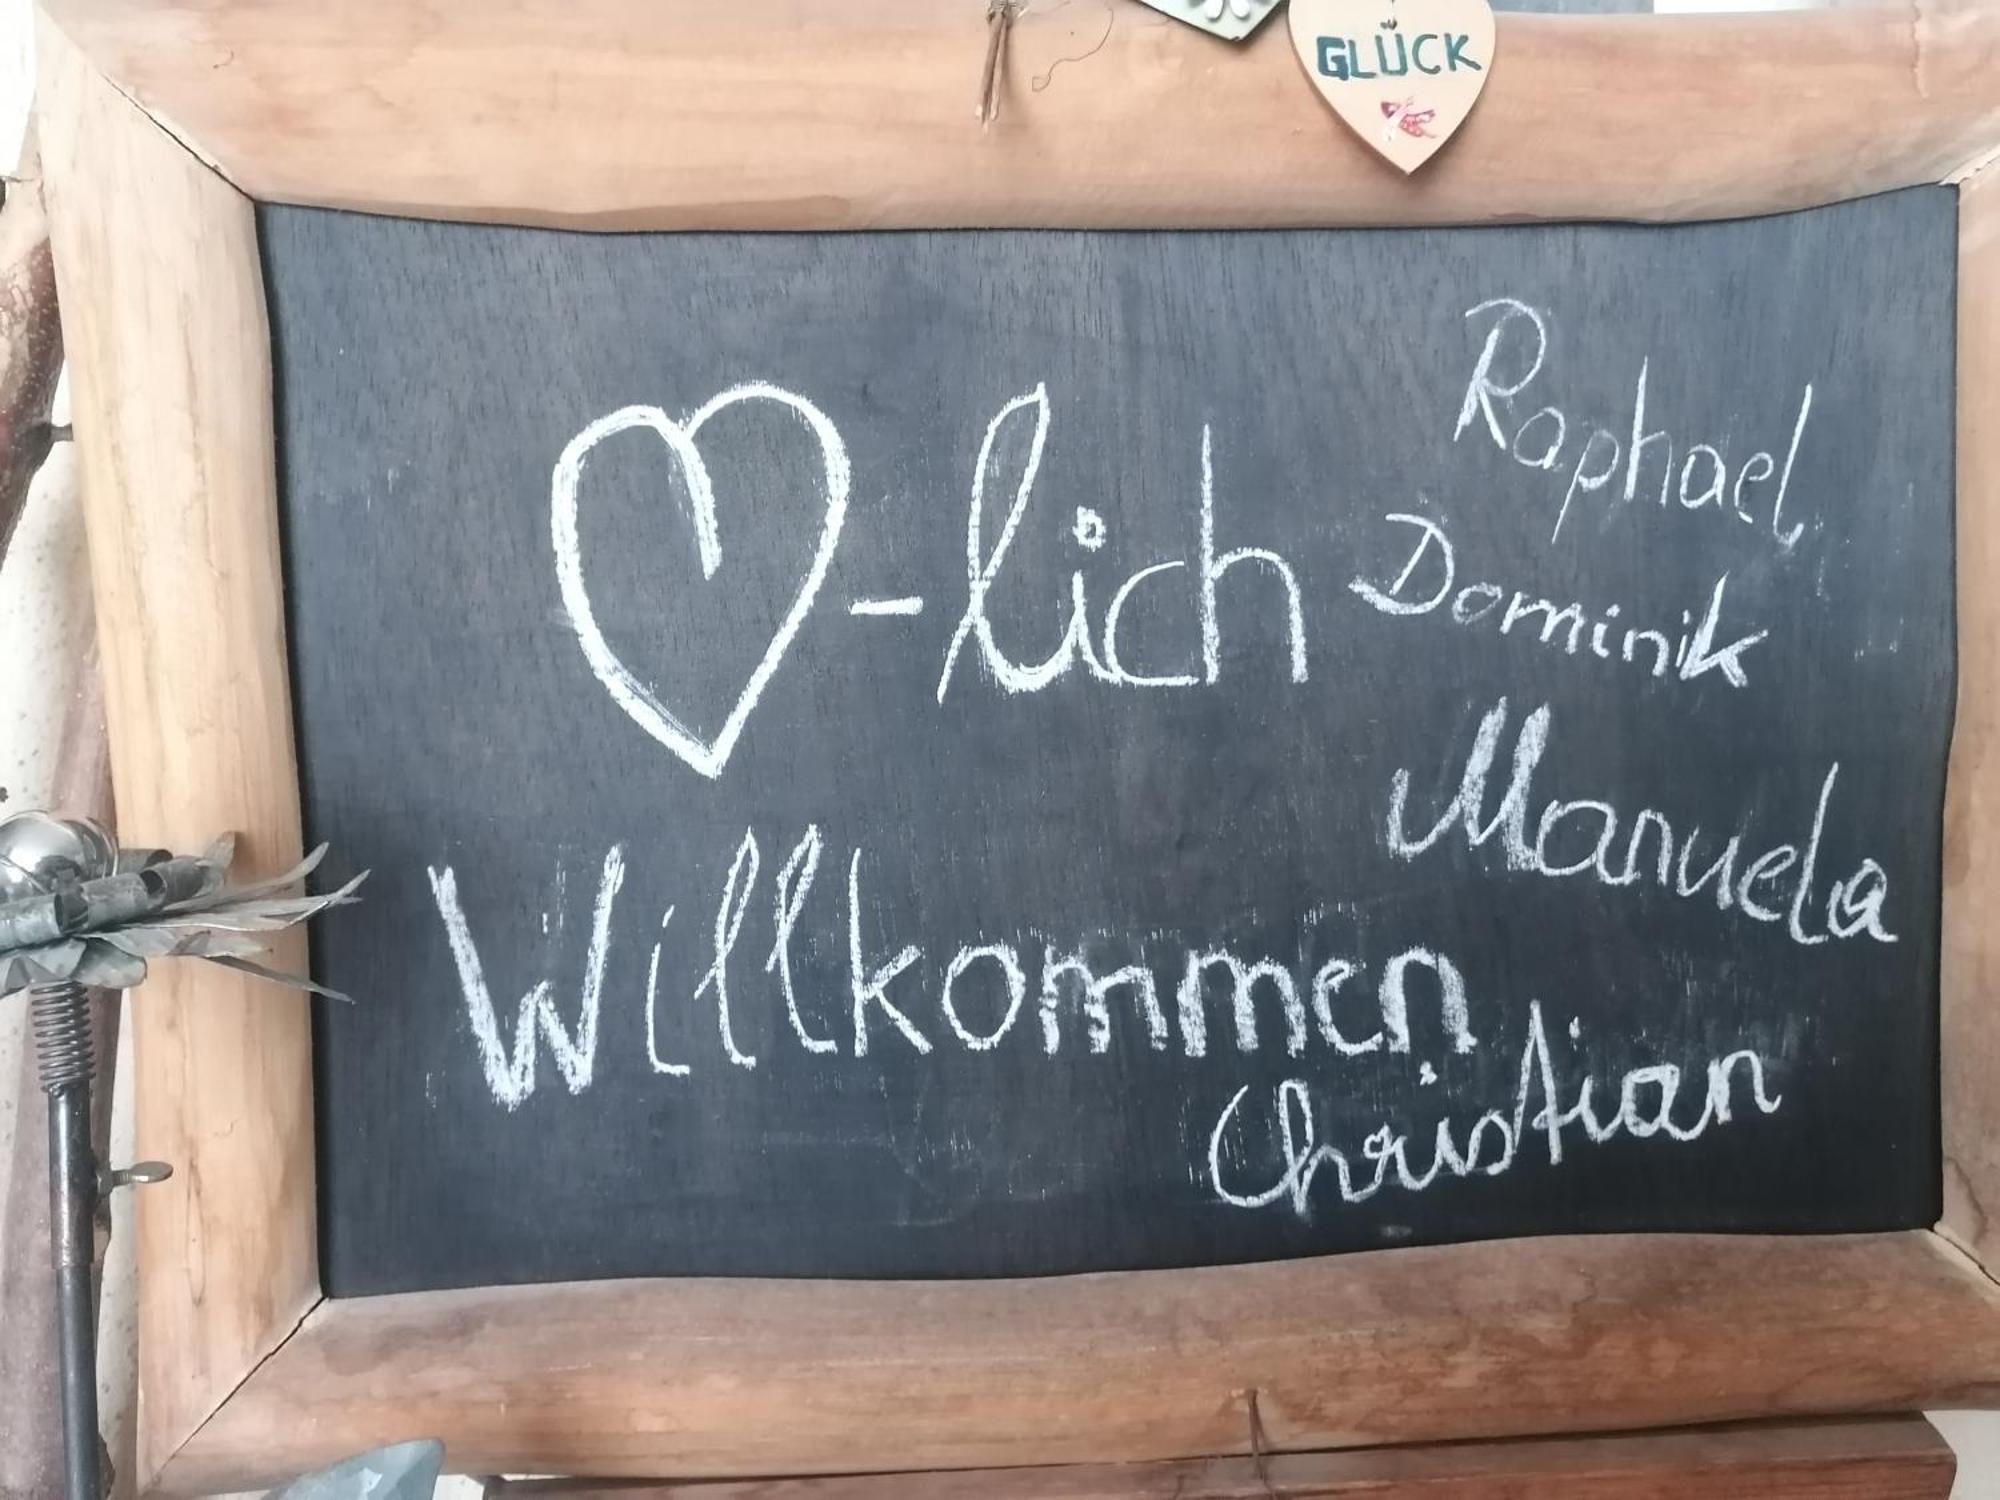 GLÜCK
♡-lich
Willkommen
Raphael
Dominik
Manuela
Christian